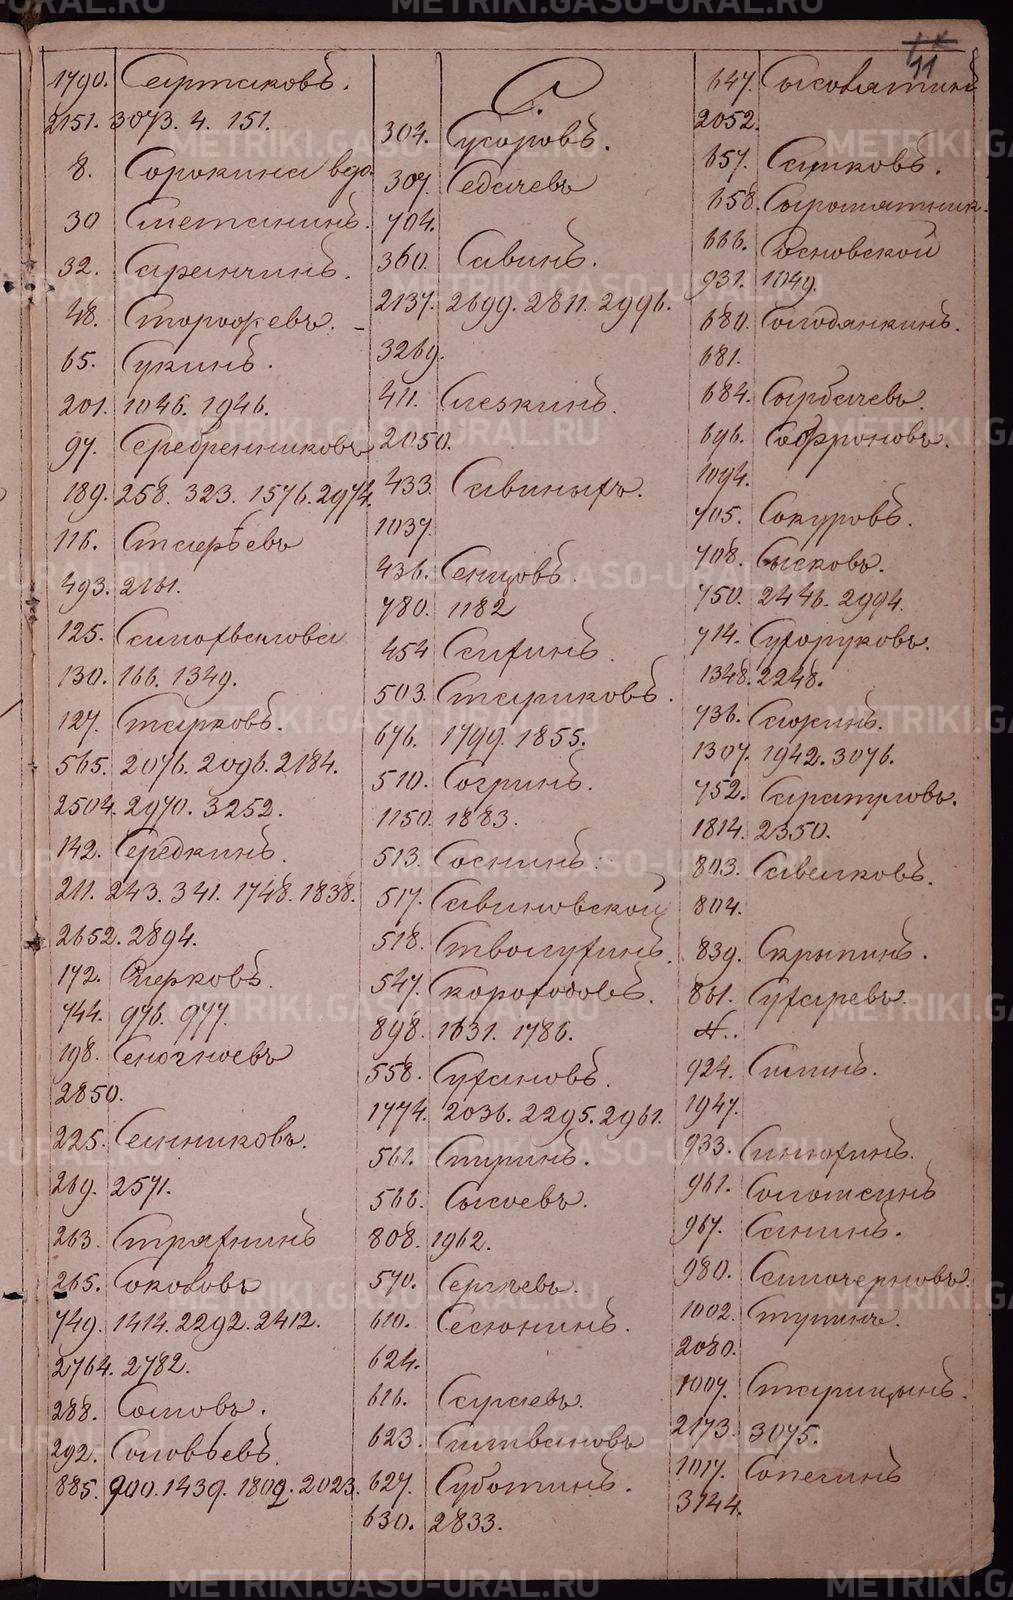 11
1790. Сартаковъ.
2151. 3073. 4. 151.
8. Сорокина вдо.
30 Сметанинъ.
32. Саранчинъ.
48. Сторожевъ.
65. Сукинъ.
201. 1046. 1946.
97. Серебренниковъ
189. 258. 323. 1576. 2974.
116. Стаерьевъ
493. 2161.
125. Самохвалова
130. 166. 1349.
127. Старковъ.
565. 2076. 2096. 2184.
2504. 2970. 3252.
142. Середкинъ.
211. 243. 341. 1748. 1838.
2652. 2894.
172. Счерковъ.
744. 976. 977.
198. Сеногноевъ
2850.
225. Санниковъ.
269. 2571.
263. Стряхнинъ
265. Соколовъ
749. 1414. 2292. 2412.
2764. 2782.
288. Сомовъ.
292. Соловьевъ.
885. 900. 1439. 1802. 2023.
С.
304. Сусоровъ.
307. Седачевъ
704.
360. Савинъ.
2137. 2699. 2811. 2996.
3269.
411. Слезкинъ.
2050.
433. Савиныхъ.
1037.
436. Сенцовъ.
780. 1182
454 Сахинъ.
503. Стариковъ.
676. 1799. 1855.
510. Согринъ.
1150. 1883.
513. Соснинъ.
517. Савиновской
518. Стволухинъ.
547. Скороходовъ.
898. 1631. 1786.
558. Сухановъ.
1774. 2036. 2295. 2961.
561. Сыринъ.
566. Сысоевъ.
808. 1962.
570. Сергѣевъ.
610. Сесюнинъ.
624.
616. Сараевъ.
623. Силивановъ
627. Суботинъ.
630. 2833.
647. Сысолятинъ
2052.
657. Сапковъ.
658. Сыромятник.
666. Сосновской
931. 1049.
680. Солодянкинъ.
681.
684. Сарбачевъ.
696. Софроновъ.
1094.
705. Сокуровъ.
708. Сысковъ.
750. 2446. 2994.
714. Сухоруковъ.
1348. 2248.
736. Сажинъ.
1307. 1942. 3076.
752. Сарапуловъ.
1814. 2350.
803. Савелковъ.
804.
839. Скрыпинъ.
861. Сухаревъ.
924. Силинъ.
1947.
933. Синюхинъ.
961. Соломеинъ
967. Санинъ.
980. Самочерновъ.
1002. Ступинъ.
2080.
1007. Старицынъ.
2173. 3075.
1017. Сопегинъ
3144.
METRIKI.GASO-URAL.RU